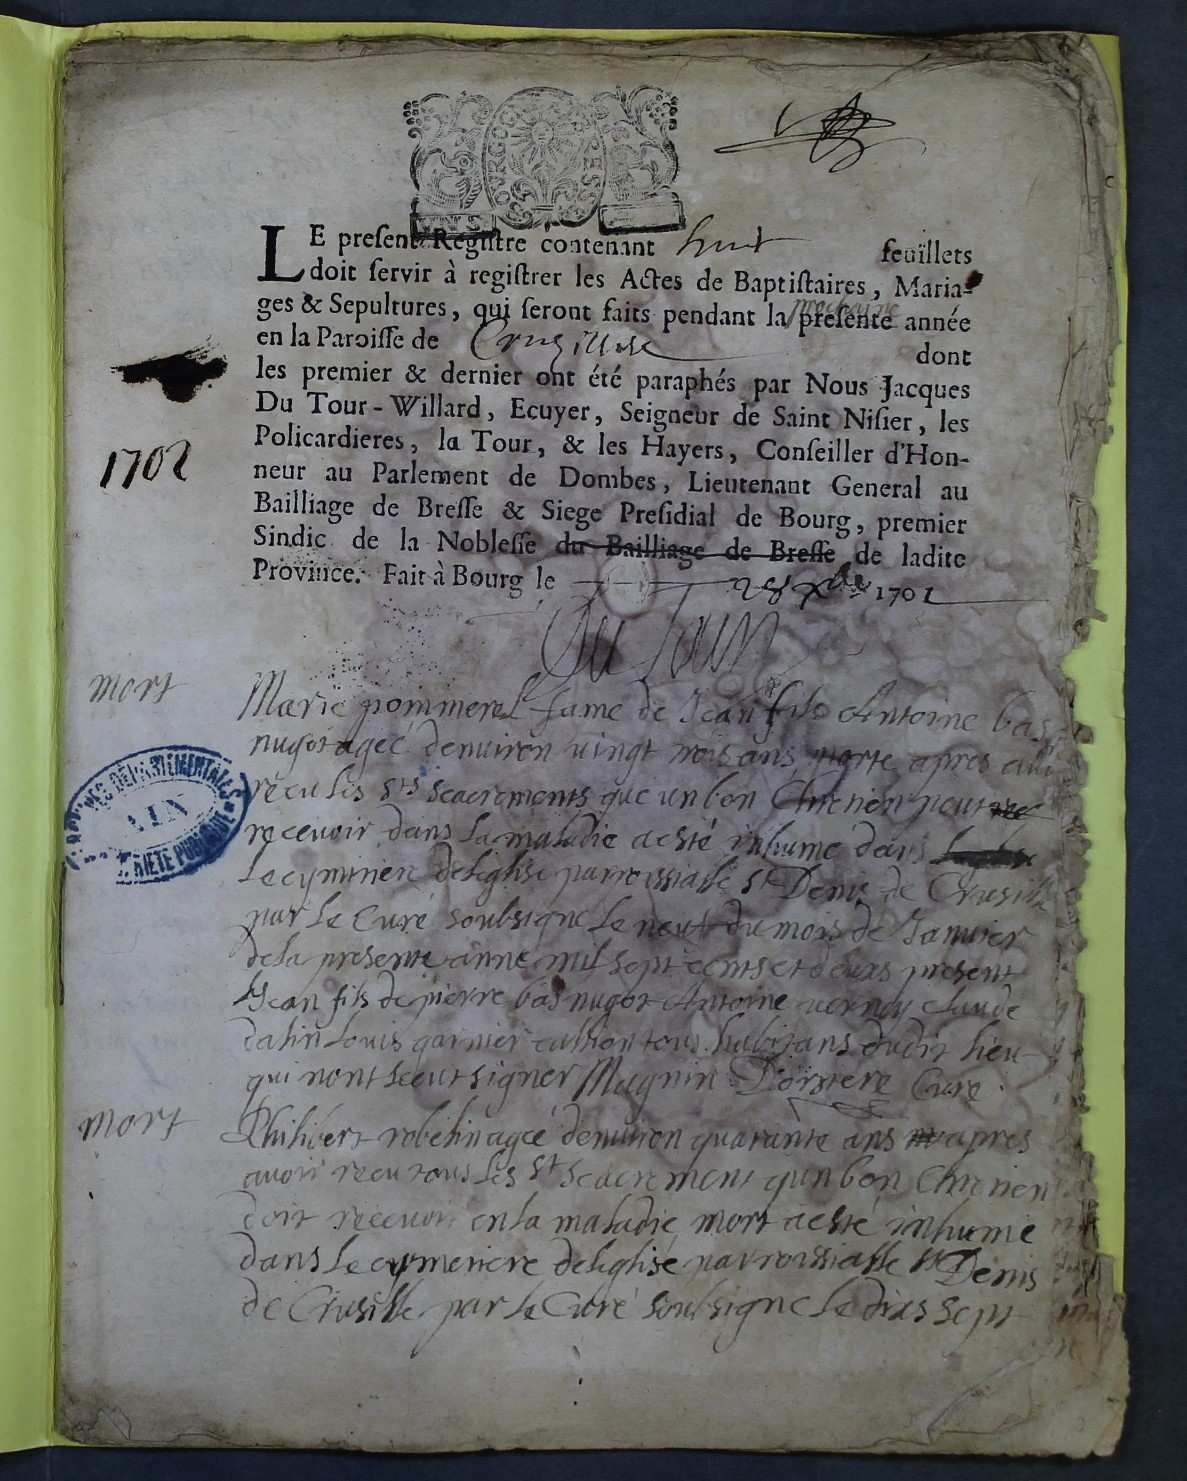 LE present Registre contenant huit feüillets
doit servir à registrer les Actes de Baptistaires, Maria-
ges & Sepultures, qui seront faits pendant la prochaine presente année
en la Paroisse de Cruzillose dont
les premier & dernier ont été paraphés par Nous Jacques
Du Tour-Willard, Ecuyer, Seigneur de Saint Nisier, les
Policardieres, la Tour, & les Hayers, Conseiller d'Hon-
neur au Parlement de Dombes, Lieutenant General au
Bailliage de Bresse & Siege Presidial de Bourg, premier
Sindic de la Noblesse du Bailliage de Bresse de ladite
Province. Fait à Bourg le 28 Xbre 1701
1702
Du Tour
mort
Marie pommerel fame de Jean fils Antoine bas
nugot agéé denuiron uingt trois ans morte apres
receu les sts seacrements que un bon Chretien peut
recevoir dans la maladie a esté inhume dans
Le cymitiere deleglise parroissialle st Denis de Crusille
par Le Curé soubsigne Le neuf du mois de Januier
dela presente anne mil sept cents et deuxs present
Jean fils de pierre bas nugot Antoine vernoy claude
datin Louis garnier tous habitans dudit lieu
qui nont sceut signer Magnin Curé
mort
Philibert robelin agéé denuiron quarante ans apres
avoir receu tous les st seacrement qun bon Chretien
doit recevoir en la maladie mort a esté inhumé
dans Le cymetiere deleglise parroissialle st Denis
de Crusille par Le Curé soubsigne Le dixs sept
ARCHIVES DÉPARTEMENTALES
AIN
PROPRIÉTÉ PUBLIQUE